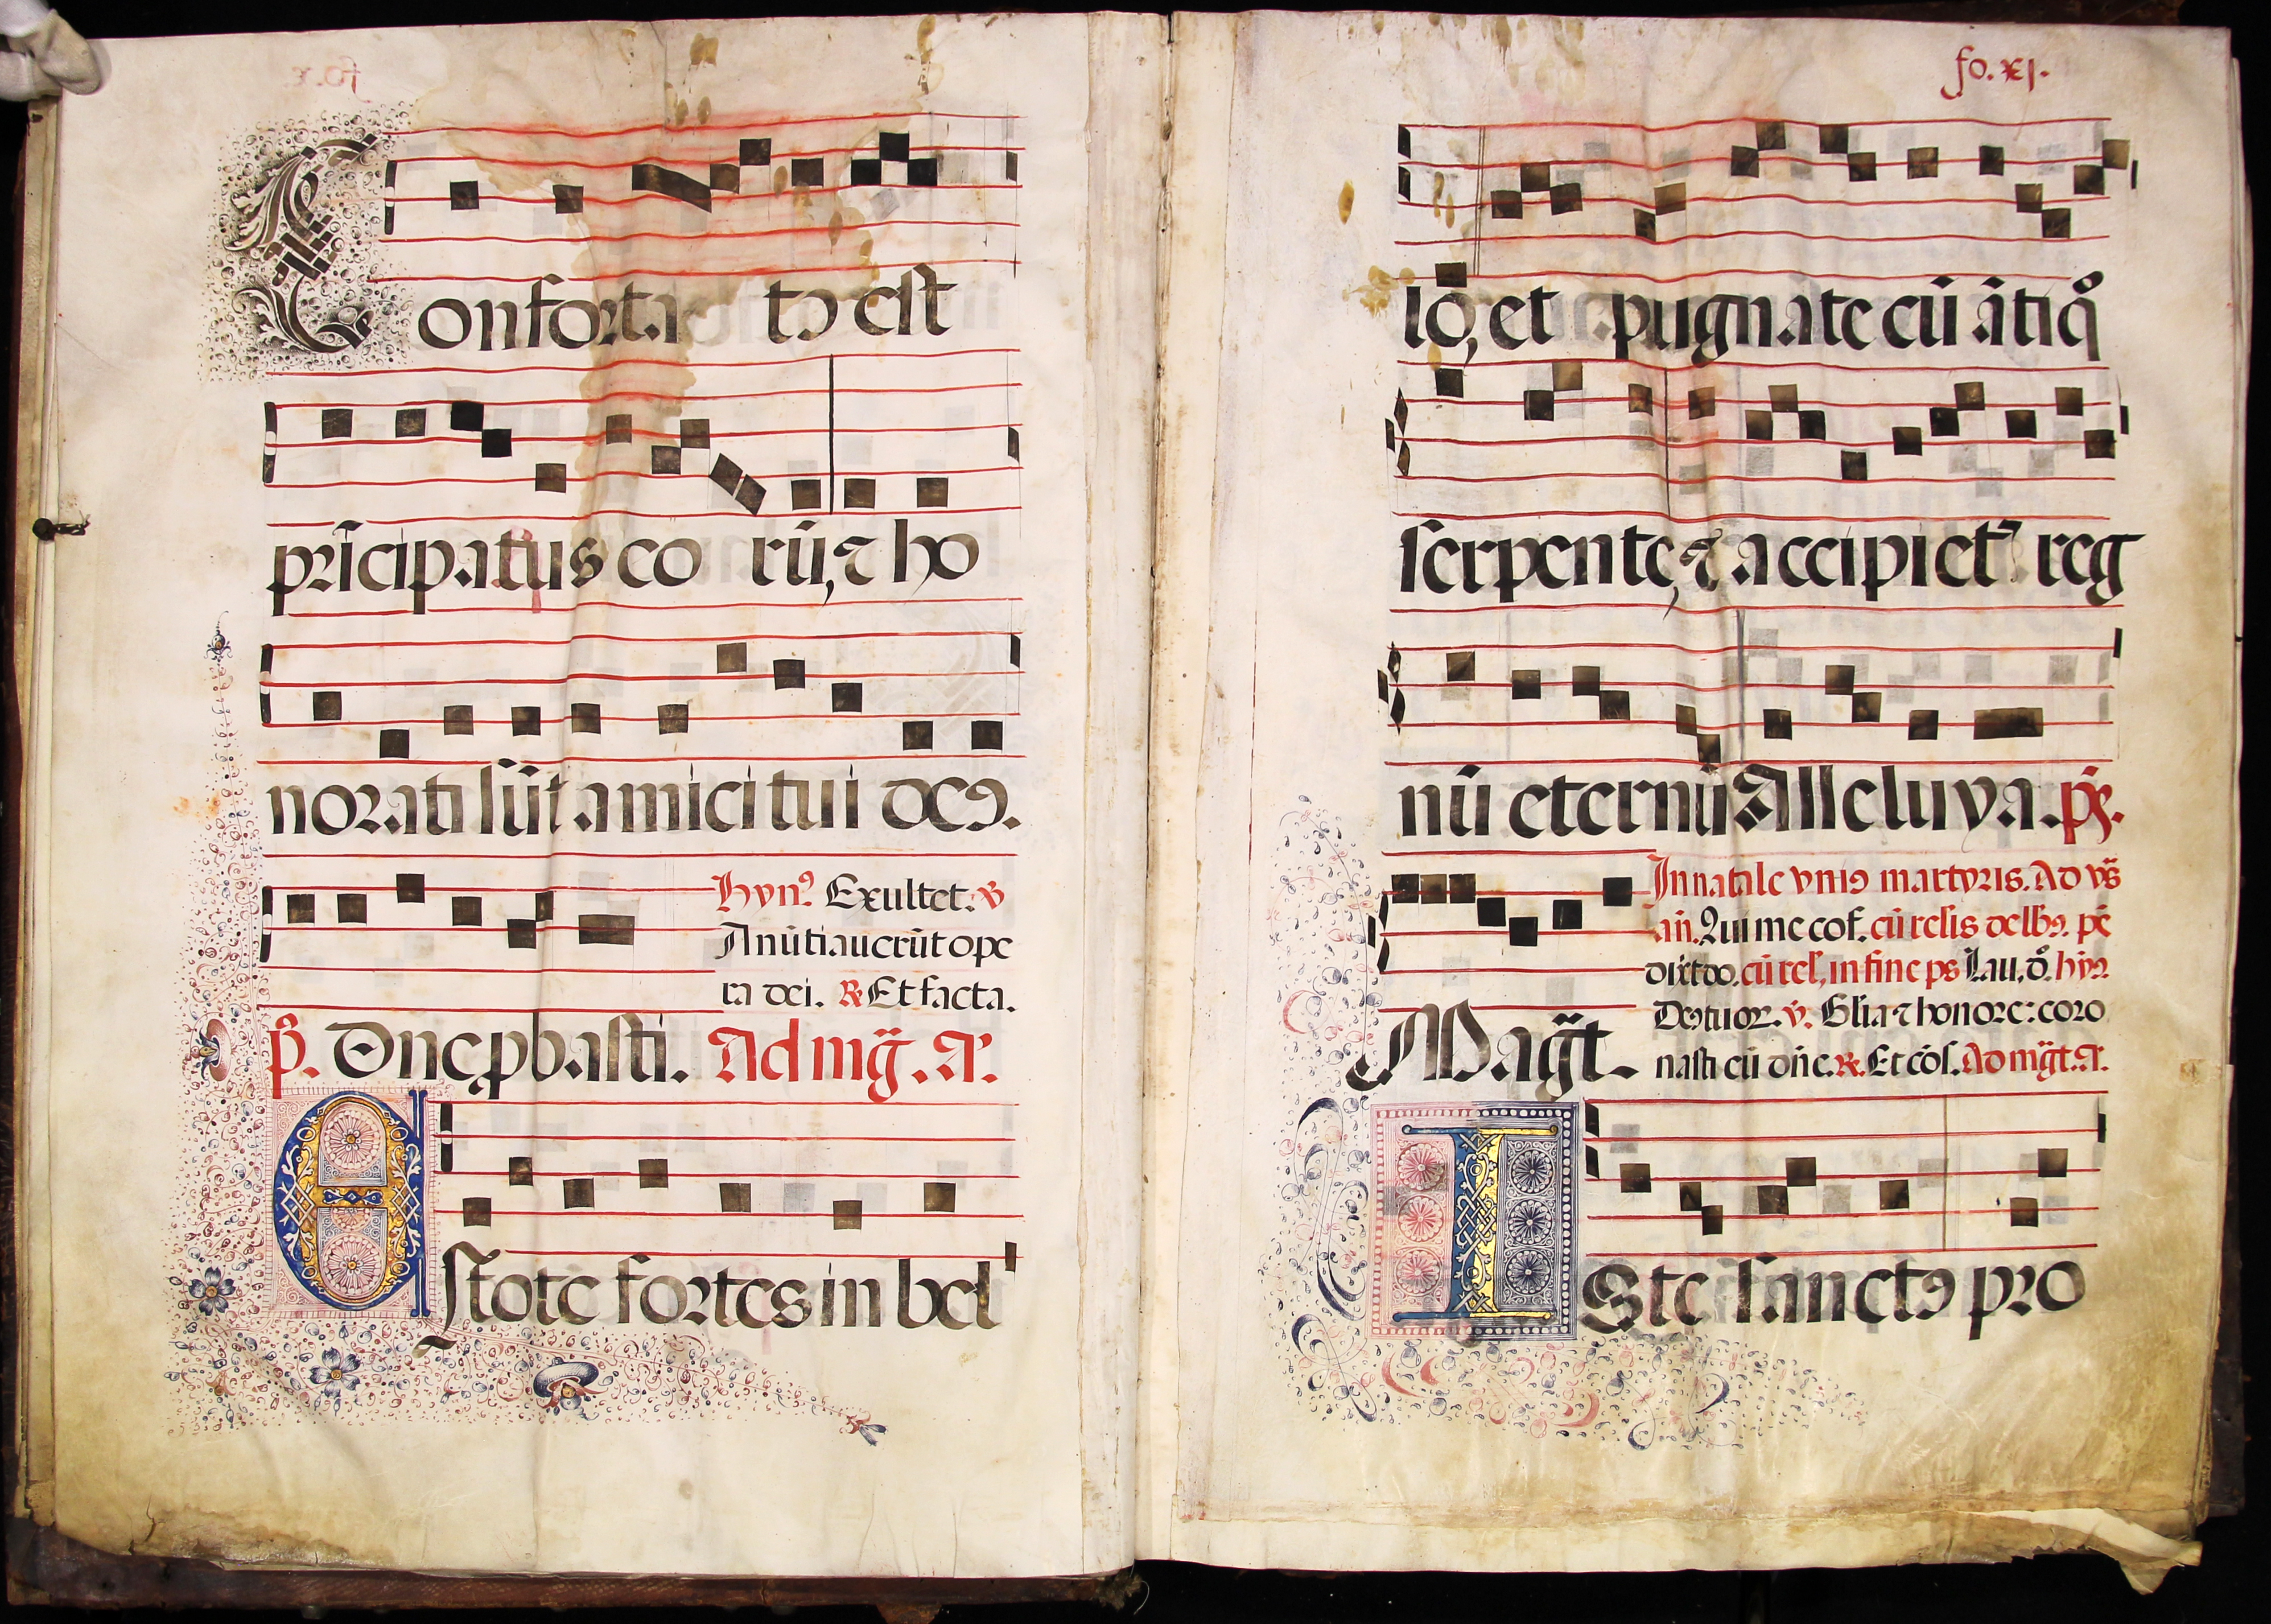 Confortatꝰ est
pr̄icipatus eorū, ⁊ ho
norati sūt amici tui deꝰ.
Hynꝰ Exultet. ꝟ
Anūtiauerūt ope
ra dei. ℟ Et facta.
p̄s. Dn̄e ꝓbasti. Ad mg̃. Aᷓ.
Estote fortes in bel
fo. xj.
lo, et pugnate cū ātiqͦ
serpente, ⁊ accipietꝭ reg
nū eternū Alleluya. ps.
In natale vniꝰ martyris. Ad vs̃
añ. Qui me cof. cū relis de lbꝰ. ps̄
dixit do. cū rel, in fine ps Lau. dͦ. hyꝰ
Deꝰ tuor. ꝟ. Glia ⁊ honore: coro
Mag̃t. nasti eū dn̄e. ℟. Et cōs. Ad mg̃t. A.
Iste sanctꝰ pro